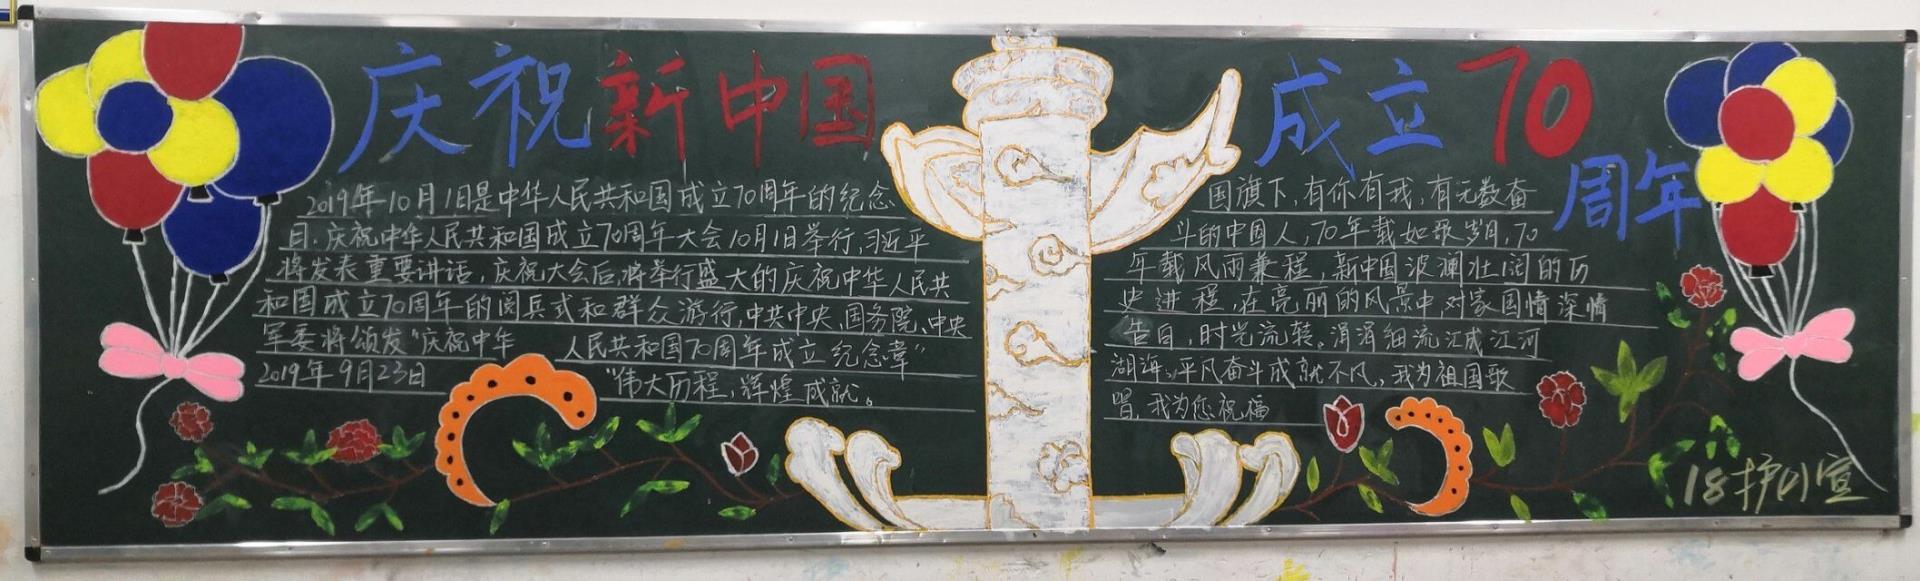 庆祝新中国成立70周年
2019年10月1日是中华人民共和国成立70周年的纪念
日.庆祝中华人民共和国成立70周年大会10月1日举行,习近平
将发表重要讲话,庆祝大会后,将举行盛大的庆祝中华人民共
和国成立70周年的阅兵式和群众游行,中共中央、国务院、中央
军委将颁发"庆祝中华 人民共和国70周年成立纪念章"
2019年9月23日 "伟大历程,辉煌成就。
国旗下,有你有我,有无数奋
斗的中国人,70年载如歌岁月,70
年载风雨兼程,新中国波澜壮阔的历
史进程,在亮丽的风景中,对家国情深情
告白,时光流转。涓涓细流汇成江河
湖海,平凡奋斗成就不凡,我为祖国歌
唱,我为您祝福
18护(1)宣